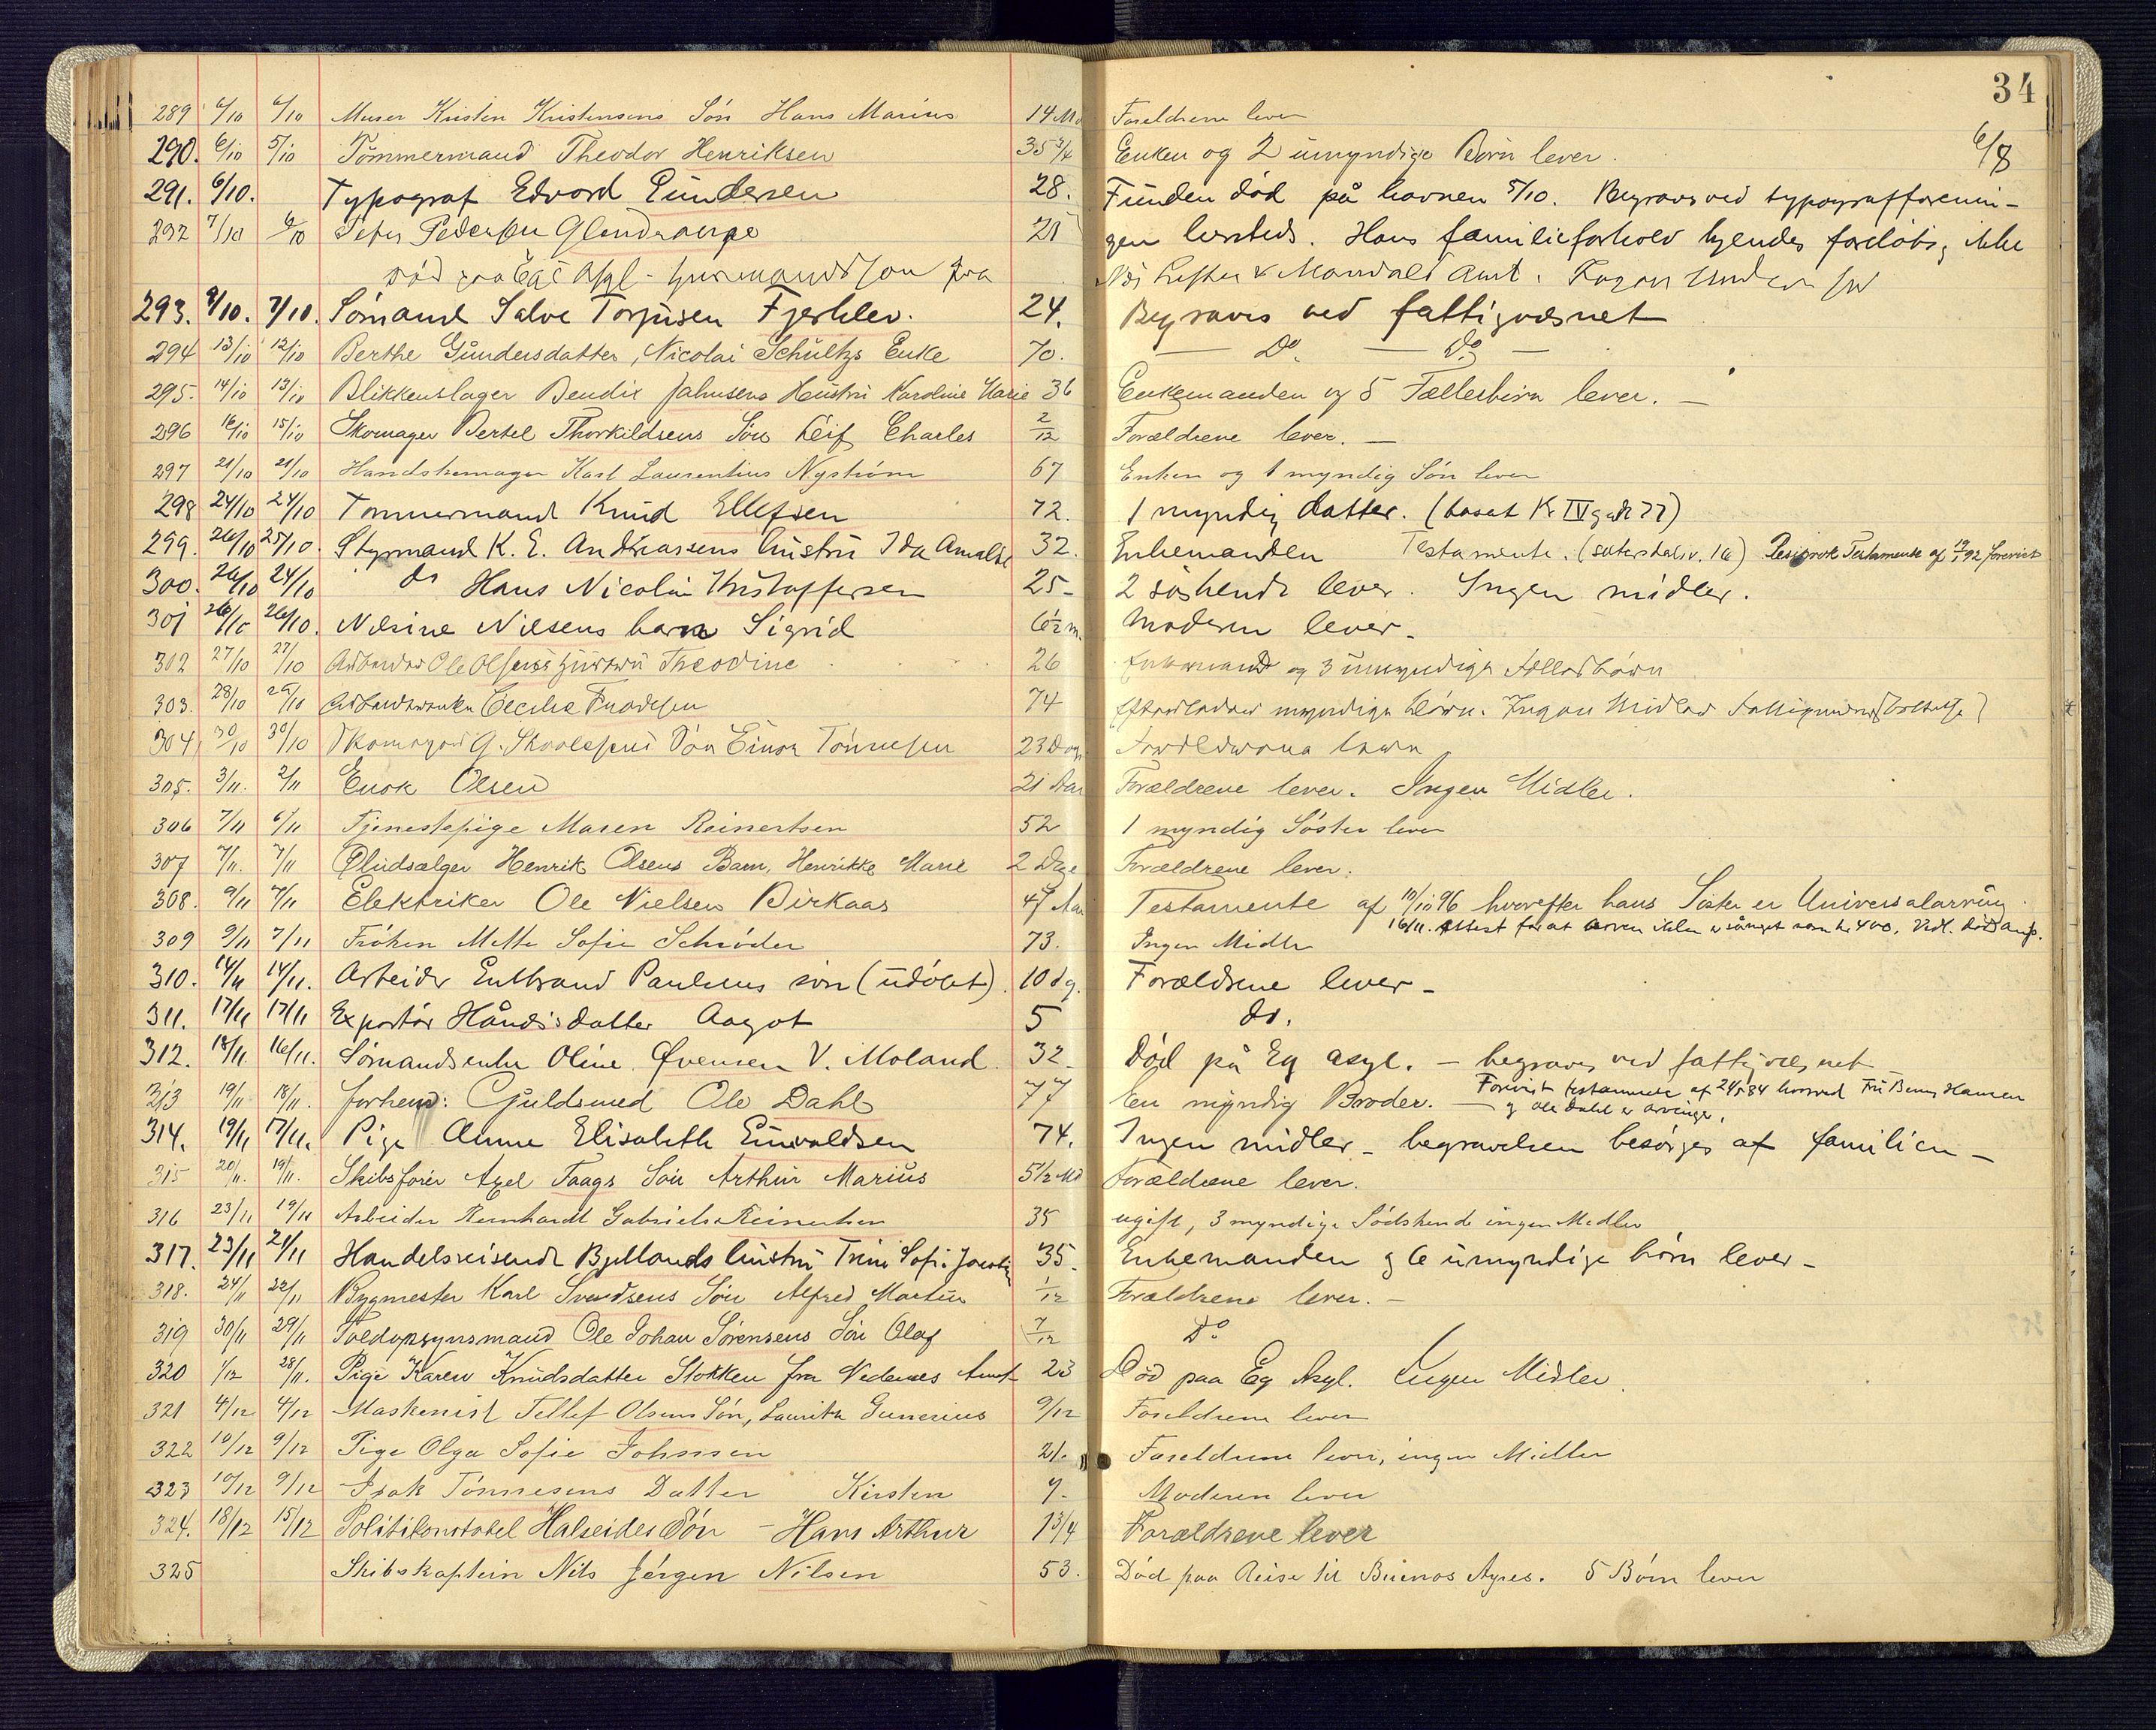 34
289 6/10 6/10 Murer Kristen Kristensens Sön Hans Marius 14 Md Foreldrene lever
290. 6/10 5/10 Tömmermand Theodor Henriksen 35 3/4 Enken og 2 umyndige Börn lever. 6/8
291. 6/10. Typograf Edvard Gundersen 28. Funden död på havnen 5/10. Begraves ved typografforenin-
292 7/10 6/10 Peter Pedersen 21 gen hersteds. Hans familieforhold kjendes foreløbig ikke
död paa Egs Asyl - fra Mandals Amt. Ingen
293. 8/10. 7/10. Sömand Salve Torjusen Fjerklev. 24. Begraves ved fattigvæsnet
294 13/10 12/10 Berthe Gundersdatter, Nicolai Schultzs Enke 70. — Do. — Do. —
295. 14/10 13/10 Blikkenslager Bendix Jahnsens Hustru Karoline Marie 36 Enkemanden og 5 Fællesbörn lever. —
296 16/10 15/10 Skomager Bertel Thorkildsens Sön Leif Charles 2/12 Forældrene lever. —
297 21/10 21/10 Handskemager Karl Laurentius Nyström 67 Enken og 1 myndig Sön lever
298 24/10 24/10 Tömmermand Knud Ellefsen 72. 1 myndig datter. (boset K. IV gade 77)
299. 26/10 25/10. Styrmand K. E. Andreassens hustru Ida Amalie 32. Enkemanden Testamente. (sætersdalsv. 16) Resiprok Testamente af 19/1 92 forevist
300. 26/10 24/10 do Hans Nicolai Kristoffersen 25- 2 söskende lever. Ingen midler.
301 26/10 26/10. Nilsine Nilsens barn Sigrid 6 1/2 m. Moderen lever.
302 27/10 27/10 Arbeider Ole Olsens Hustru Theodine 26 Enkemand og 3 umyndige Fællesbörn
303. 28/10 Arbeiderenke Cecilie Knudsen 74 Efterlader myndige börn. Ingen Midler
304. 30/10 30/10 Skomager G. Sön Einar Tönnesen 23 Dage Forældrene lever
305. 3/11. 2/11 Enok Olsen 21 Aar Forældrene lever. Ingen Midler.
306 7/11 6/11 Tjenestepige Maren Reinertsen 52 1 myndig Söster lever
307 7/11. 7/11 Pludsælger Henrik Olsens Barn, Henrikke Marie 2 Dage Forældrene lever.
308. 9/11 7/11 Elektriker Ole Nielsen Birkaas 47 Aar Testamente af 10/10 96 hvorefter hans Söster er Universalarving.
16/11. Attest for at arven ikke er sånget som kr. 400. Vedl. dödsanf.
309 9/11 7/11 Fröken Mette Sofie Schröder 73. Ingen Midler
310. 14/11 14/11. Arbeider Gulbrand Paulsens sön (udöbt). 10 dg. Forældrene lever -
311. 17/11 17/11 Exportör Håndsdatter Aagot 5 do.
312. 18/11. 16/11. Sömandsenke Oline Øvensen V. Moland. 32 Död på Eg asyl. - begraves ved fattigvæsnet
313 19/11 18/11. forhenv: Guldsmed Ole Dahl 77 En myndig Broder. — Forevist testamente af 24/5 84 hvorved Fru Hansen
og Ole Dahl er arvinger.
314. 19/11 17/11. Pige Anne Elisabeth Envoldsen 74. Ingen midler - begravelsen besörges af familien -
315 20/11. 19/11. Skibsförer Axel Faags Sön Arthur Marius 5 1/2 Md Forældrene lever.
316 23/11 19/11 Arbeider Bernhardt Gabriels Reinertsen 35 ugift, 3 myndige Södskende ingen Midler
317. 23/11 21/11 Handelsreisende Bjellands hustru Trine Sofie 35. Enkemanden og 6 umyndige börn lever -
318. 24/11 22/11 Bygmester Karl Svendsens Sön Alfred Martin 1/12 Forældrene lever. -
319 30/11 29/11 Toldopsynsmand Ole Johan Sörensens Sön Olaf 7/12 Do
320 1/12 28/11. Pige Karen Knudsdatter Stokken fra Nedenes Amt 23 Död paa Eg Asyl. Ingen Midler.
321 4/12 4/12 Maskenist Tellef Olsens Sön, Lauritz Gunerius 9/12 Foreldrene lever
322 10/12 9/12 Pige Olga Sofie Johnsen 21. Foreldrene lever, ingen Midler
323 10/12 9/12 Isak Tönnesens Datter Kirsten 7. Moderen lever
324. 18/12 15/12 Politikonstabel Halseides Sön - Hans Arthur 1 3/4 Forældrene lever
325 Skibskaptein Nils Jörgen Nilsen 53. Död paa Reise til Buenos Ayres. 5 Börn lever